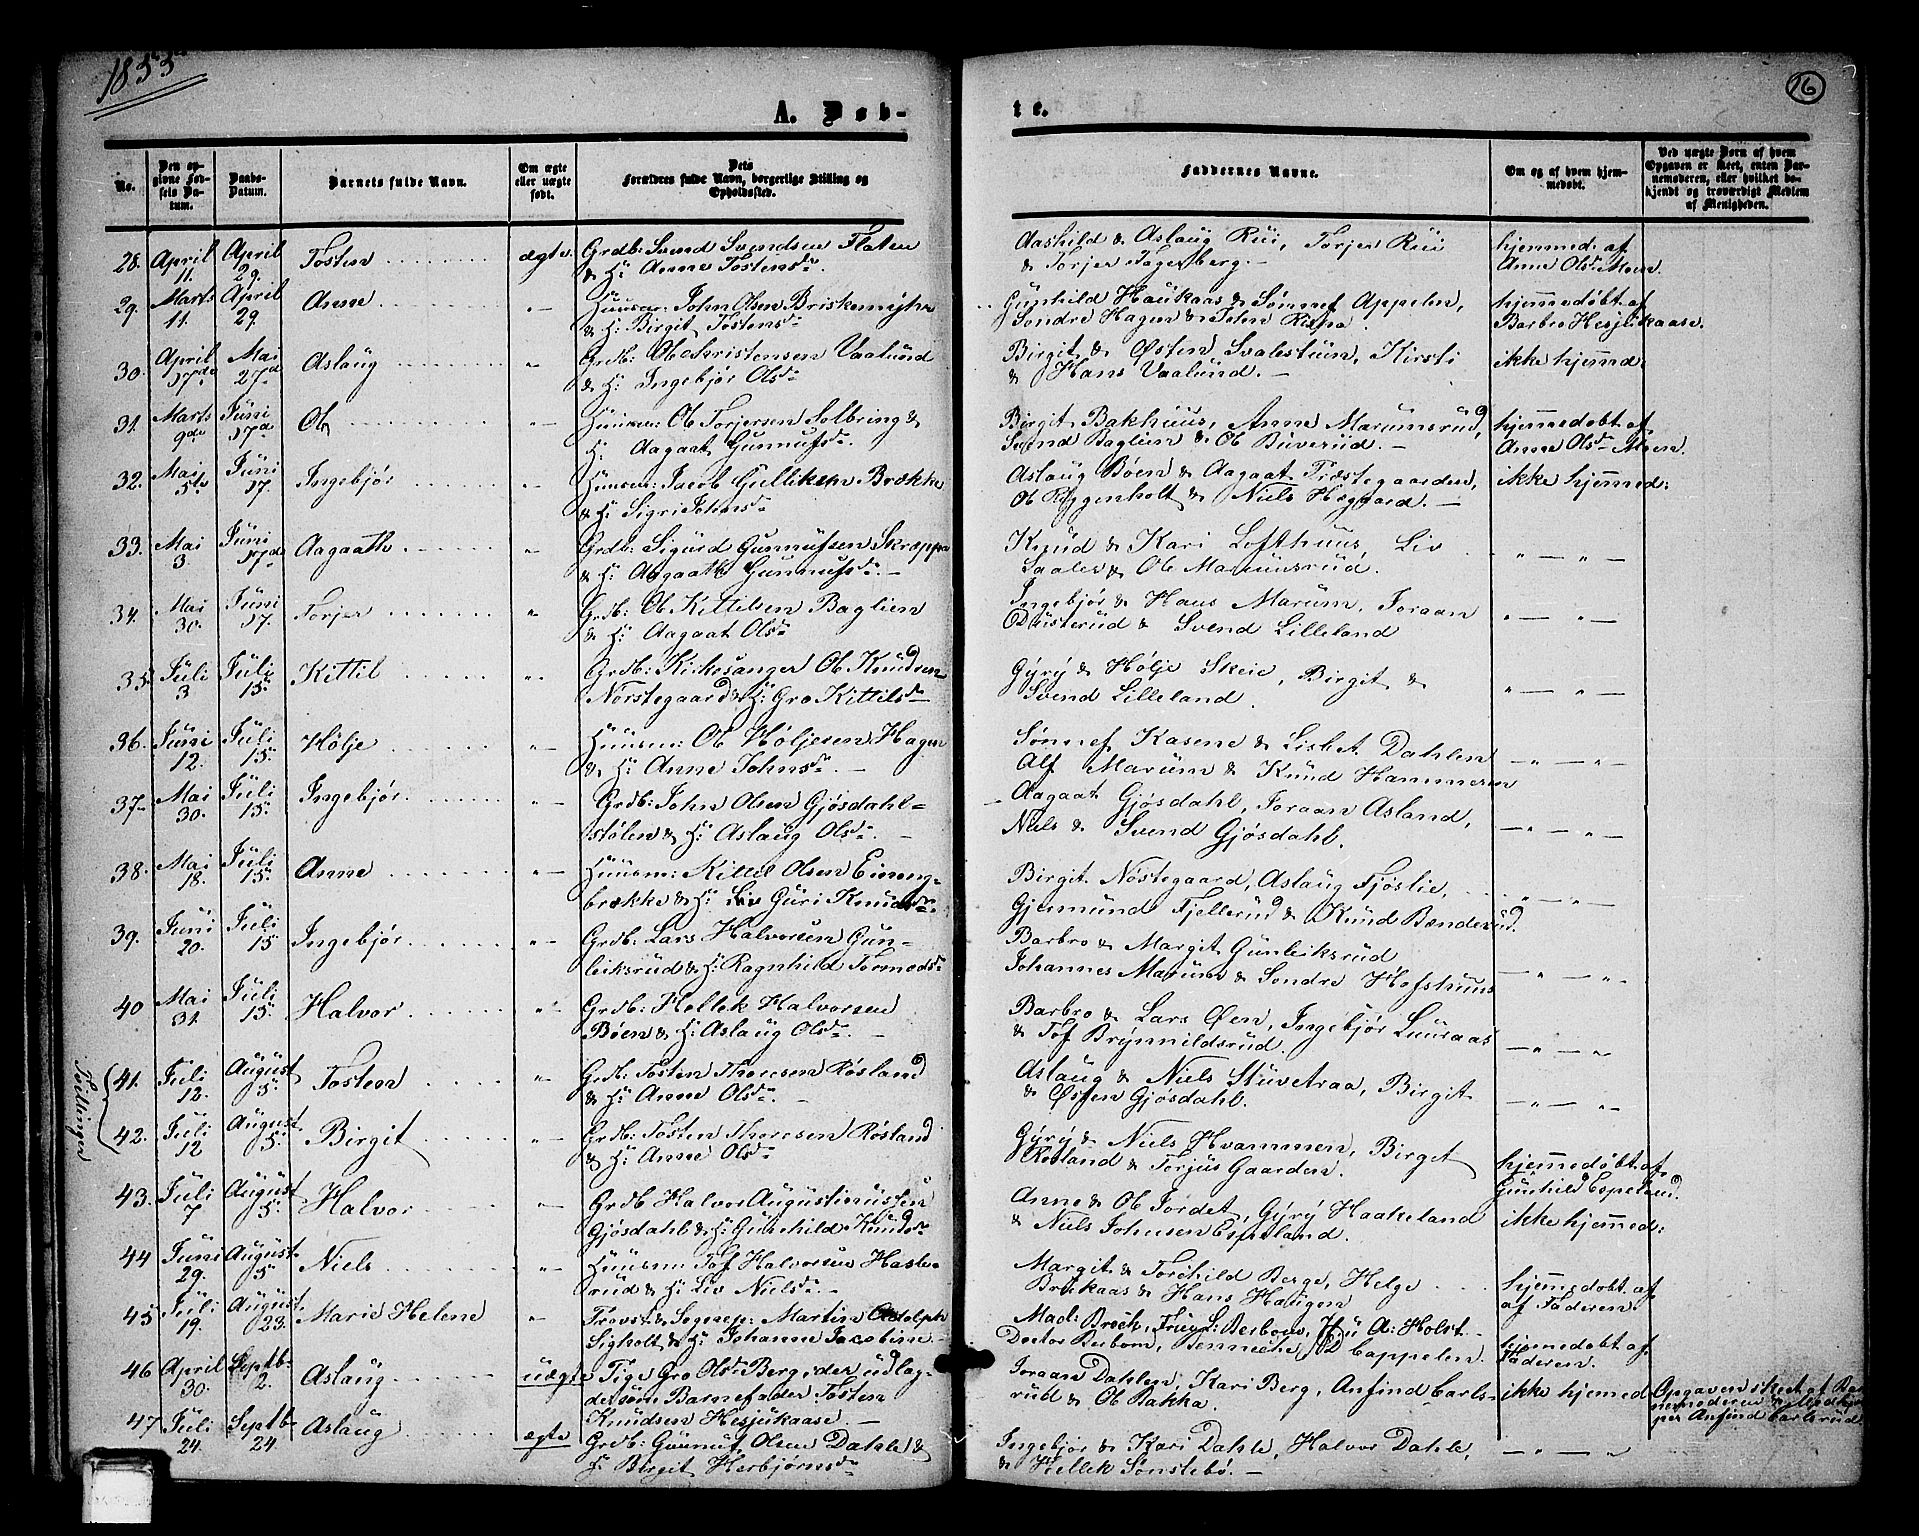 1855
16
A. Døb-
te.
No.
Den opgivne Fødsels Datum.
Daabs-Datum.
Barnets fulde Navn.
Om ægte eller uægte født.
Dets Forældres fulde Navn, borgerlige Stilling og Opholdssted.
Faddernes Navne.
Om og af hvem hjemmedøbt.
Ved uægte Børn af hvem Opgaven er skeet, enten Barnemoderen, eller hvilket bekjendt og troværdigt Medlem af Menigheden.
28. April 11. April 29. Tosten ægte. Grdb: Svend Svendsen Flaten & H: Anne Tostensdr. Aashild & Aslaug Rui, Torjer Rui & Torjer Fogerberg. hjemmed: af Anne Olsdr Moen.
29. Marts 11. April 29. Anne „ Huusm: John Olsen Briskemyhr & H: Birgit Tostensdr Gunhild Haukaas & Sønnef Appelen, Sondre Hagen & John Rispa. hjemmedøbt af Barbro Hesjukaase.
30. April 17de Mai 27de Aslaug „ Grdb: Ole Christensen Vaalund & H: Ingebjør Olsdr Birgit & Østen Svalestuen, Kirsti & Hans Vaalund. ikke hjemmd:
31. Marts 9de Juni 17de Ole „ Huusm: Ole Torjersen Solbring & H: Aagaat Gunnufsdr. Birgit Bakhuus, Anne Marumsrud, Svend Baglien & Ole Buverud. hjemmedøbt af Anne Olsdr Moen.
32. Mai 5te Juni 17. Ingebjør „ Huusm: Jacob Gulliksen Brække & H: Sigri Johnsdr Aslaug Bøen & Aagaat Træstegaarden, Ole Roggenholt & Niels Hægaard. ikke hjemmed:
33. Mai 3. Juni 17de Aagaath „ Grdb: Sigurd Gunnufsen Skræppa & H: Aagaath Gunnufsdr. Knud & Kari Lofthuus, Liv Saales & Ole Marumsrud. „ — „ —
34. Mai 30. Juni 17. Torjer „ Grdb: Ole Kittilsen Baglien & H: Aagaat Olsdr Ingebjør & Hans Marum, Joraan Østerud & Svend Lilleland „ — „ —
35. Juli 3 Juli 15. Kittil „ Grdb: Kirkesanger Ole Knudsen Nørstegaard & H: Gro Kittilsdr Gyry & Hølje Skeie, Birgit & Svend Lilleland. „ — „ —
36. Juni 12. Juli 15. Hølje „ Huusm: Ole Høljesen Hagen & H: Anne Johnsdr. Sønnef Kasene & Lisbet Dahlen Alf Marum & Knud Hammeren — „ — „
37. Mai 30. Juli 15. Ingebjør „ Grdb: John Olsen Gjøsdahl-stølen & H: Aslaug Olsdr. Aagaat Gjøsdahl, Joraan Asland, Niels & Svend Gjøsdahl. — „ — „
38. Mai 18. Juli 15. Anne „ Huusm: Kittil Olsen Einung-brække & H: Liv Guri Knudsdr. Birgit Nøstegaard, Aslaug Fjøslie, Gjermund Fjellerud & Knud Bænderud. „ — „ —
39. Juni 20. Juli 15 Ingebjør „ Grdb: Lars Halvorsen Gun-leiksrud & H: Ragnhild Tormodsdr Barbro & Margit Gunleiksrud Johannes Marum & Sondre Hofshuus — „ — „
40 Mai 31. Juli 15. Halvor „ Grdb: Hellek Halvorsen Bøen & H: Aslaug Olsdr. Barbro & Lars Øen, Ingebjør Luuraas & Tof Brynnildsrud. — „ — „
Tvillinger
41. Juli 12. August 5. Tosten „ Grdb: Tosten Thoresen Røsland & H: Anne Olsdr. Aslaug & Niels Stuvetraa, Birgit & Østen Gjøsdahl. — „ — „
42. Juli 12 August 5. Birgit „ Grdb: Tosten Thoresen Røsland & H: Anne Olsdr Gyry & Niels Hvammen, Birget Røsland & Torjus Gaarden. hjemmedøbt af Gunhild Espeland.
43. Juli 7 August 5. Halvor „ Grdb Halvor Augustinussen Gjøsdahl & H: Gunhild Knudsdr Anne & Ole Fordet, Gyry Haakeland & Niels Johnsen Espeland. ikke hjemmed:
44 Juni 29. August 5 Niels „ Huusm Tof Halvorsen Hasle-rud & H: Liv Nielsdr. Margit & Torchild Berge, Helge Brukaas & Hans Haugen hjemmedøbt af af Faderen.
45 Juli 19. August 23. Marie Helene „ Provst & Sogepr: Martin Adolph Sigholt & H: Johanne Jacobine Mad: Broch, Fru L: Berbom, A: Holst Doctor Berbom, Benneche, D Cappelen. hjemmedøbt af Faderen.
46 April 30. Septb 2. Aslaug uægte Pige Gro Olsdr Berg, der udlag-der som Barnefader Tosten Knudsen Hesjukaase. Joraan Dahlen, Kari Berg, Anfind Carls-rud & Ole Bakka. ikke hjemed Opgaven skeet af Bar-nemoderen & Medhjel-per Anfind Carlsrud
47 Juli 24. Septb 24 Aslaug ægte Grdb: Gunnuf Olsen Dahle & H: Birgit Herbjørnsdr Ingebjør & Kari Dahle, Halvor Dahle, & Hellek Sønstebø. — „ — „